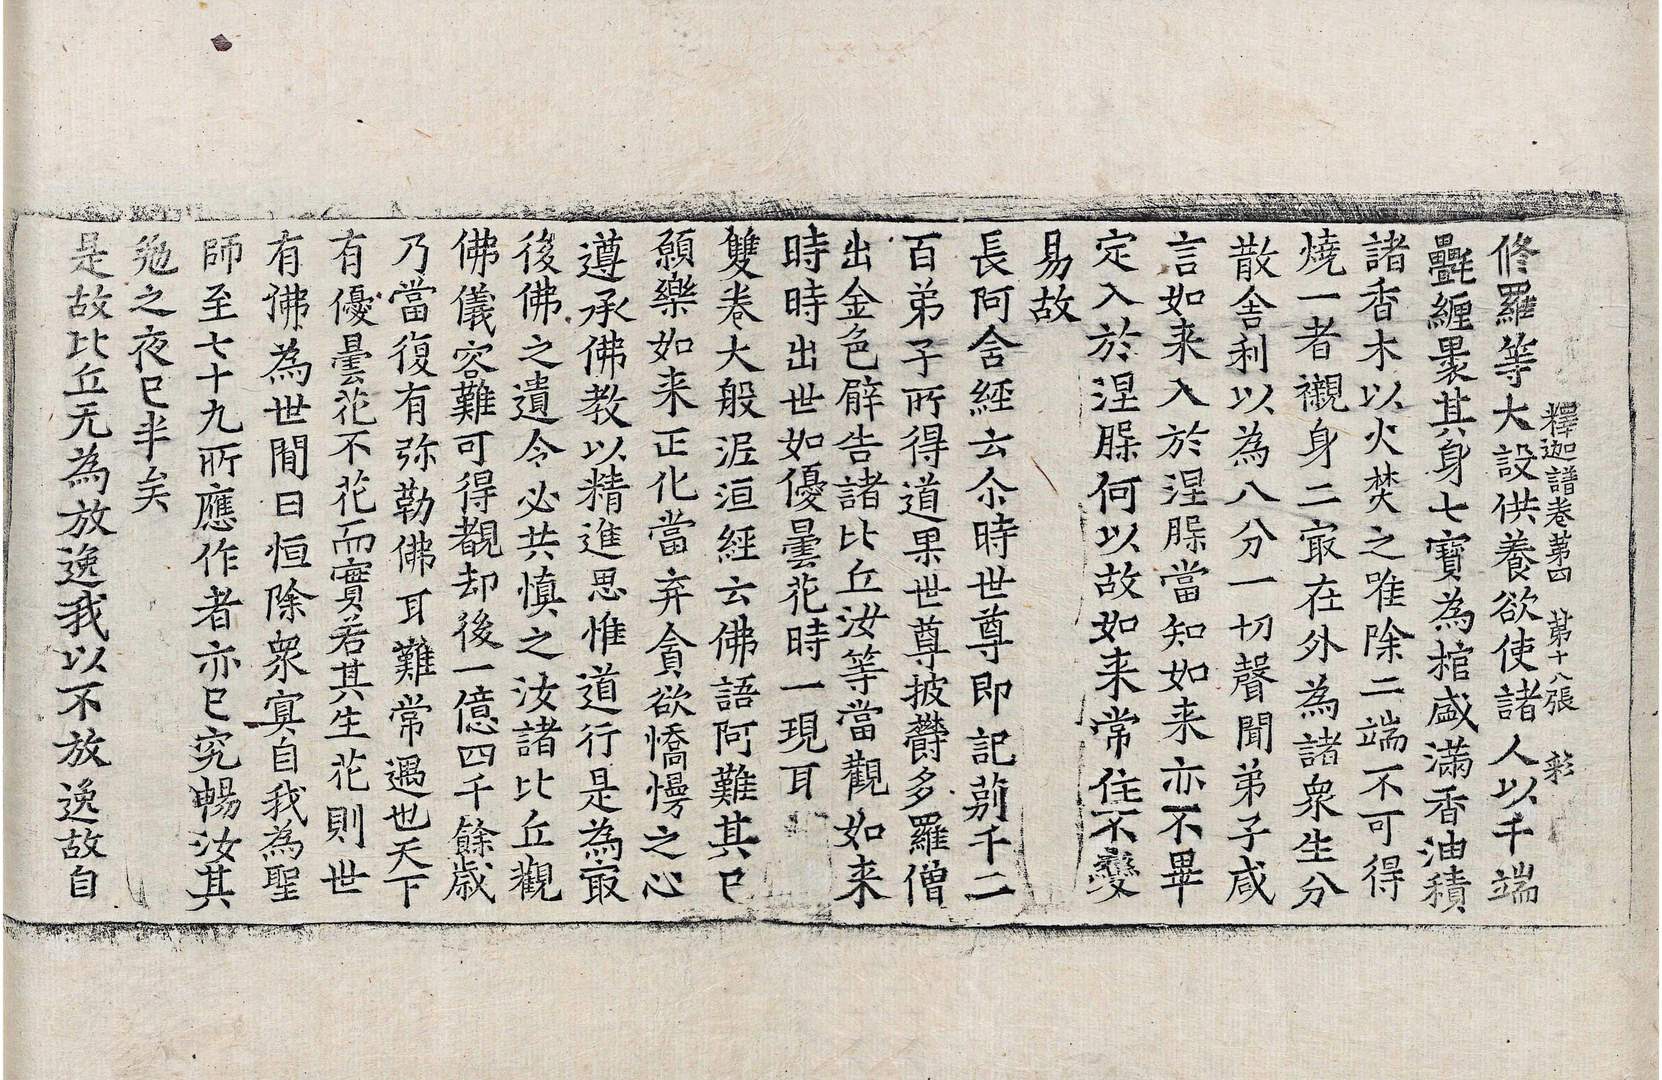 釋迦譜卷第四 第十八張 彩
修羅等大設供養欲使諸人以千端
㲲纏褁其身七寶為棺盛滿香油積
諸香木以火焚之唯除二端不可得
燒一者襯身二㝡在外為諸衆生分
散舍利以為八分一切聲聞弟子咸
言如来入於涅脲當知如来亦不畢
定入於涅脲何以故如来常住不變
易故
長阿含經云尒時世尊即記莂千二
百弟子所得道果世尊披欝多羅僧
出金色臂告諸比丘汝等當觀如来
時時出世如優曇花時一現耳
雙卷大般泥洹經云佛語阿難其已
願樂如来正化當弃貪欲憍慢之心
遵承佛教以精進思惟道行是為㝡
後佛之遺令必共慎之汝諸比丘觀
佛儀容難可得覩却後一億四千餘歳
乃當復有弥勒佛耳難常遇也天下
有優曇花不花而實若其生花則世
有佛為世間日恒除衆㝠自我為聖
師至七十九所應作者亦已究暢汝其
勉之夜已半矣
是故比丘无為放逸我以不放逸故自